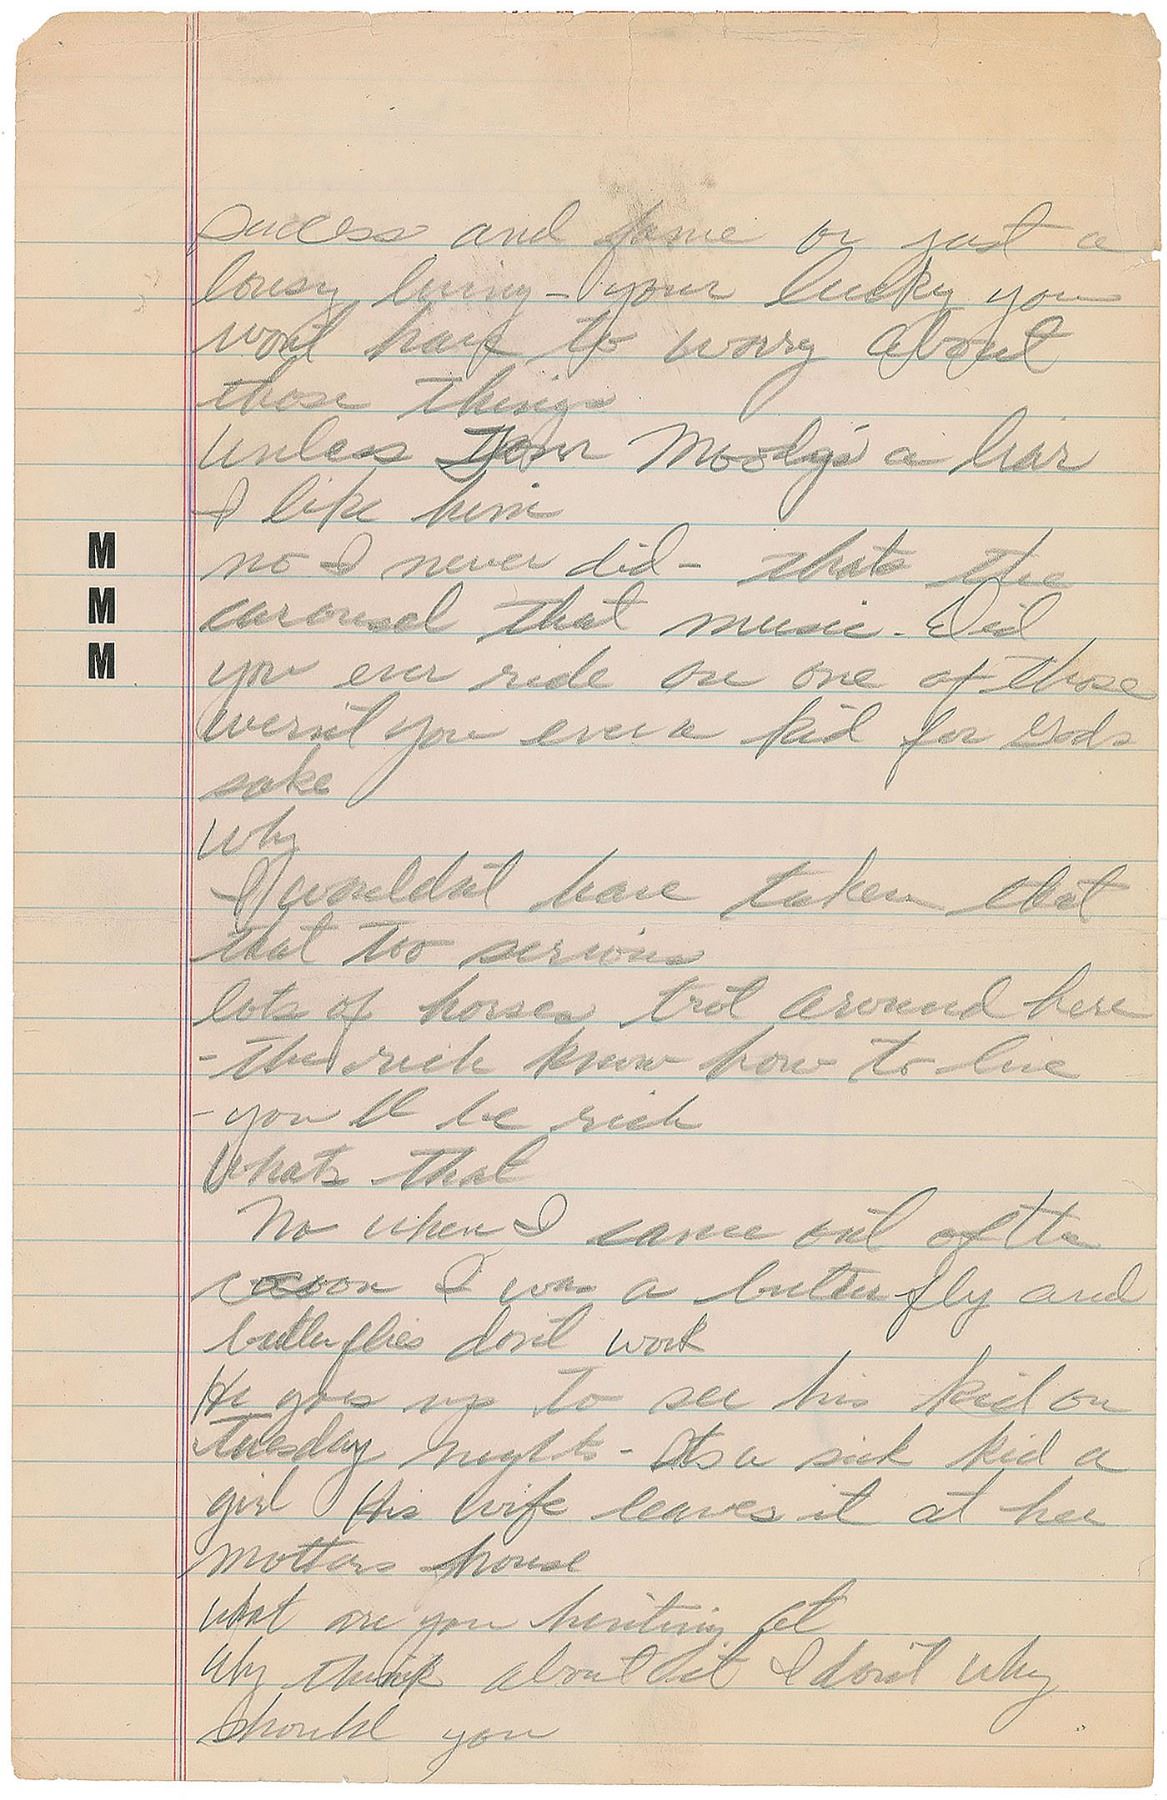 success and fame or just a
lousy living - your lucky you
wont have to worry about
those things
unless Tom Moody's a liar
I like him
no I never did - thats the
M
carousel that music. Did
M
you ever ride on one of those
M
wern't you ever a kid for Gods
sake
Why
I wouldn't have taken that
that too serious
lots of horses trot around here
- the rich know how to live
- you ll be rich
Whats that
No when I came out of the
cocoon I was a butterfly and
butterflies don't work
He goes up to see his kid on
Tuesday nights - Its a sick kid a
girl His wife leaves it at her
mothers house
what are you hinting at
Why think about it I don't why
should you